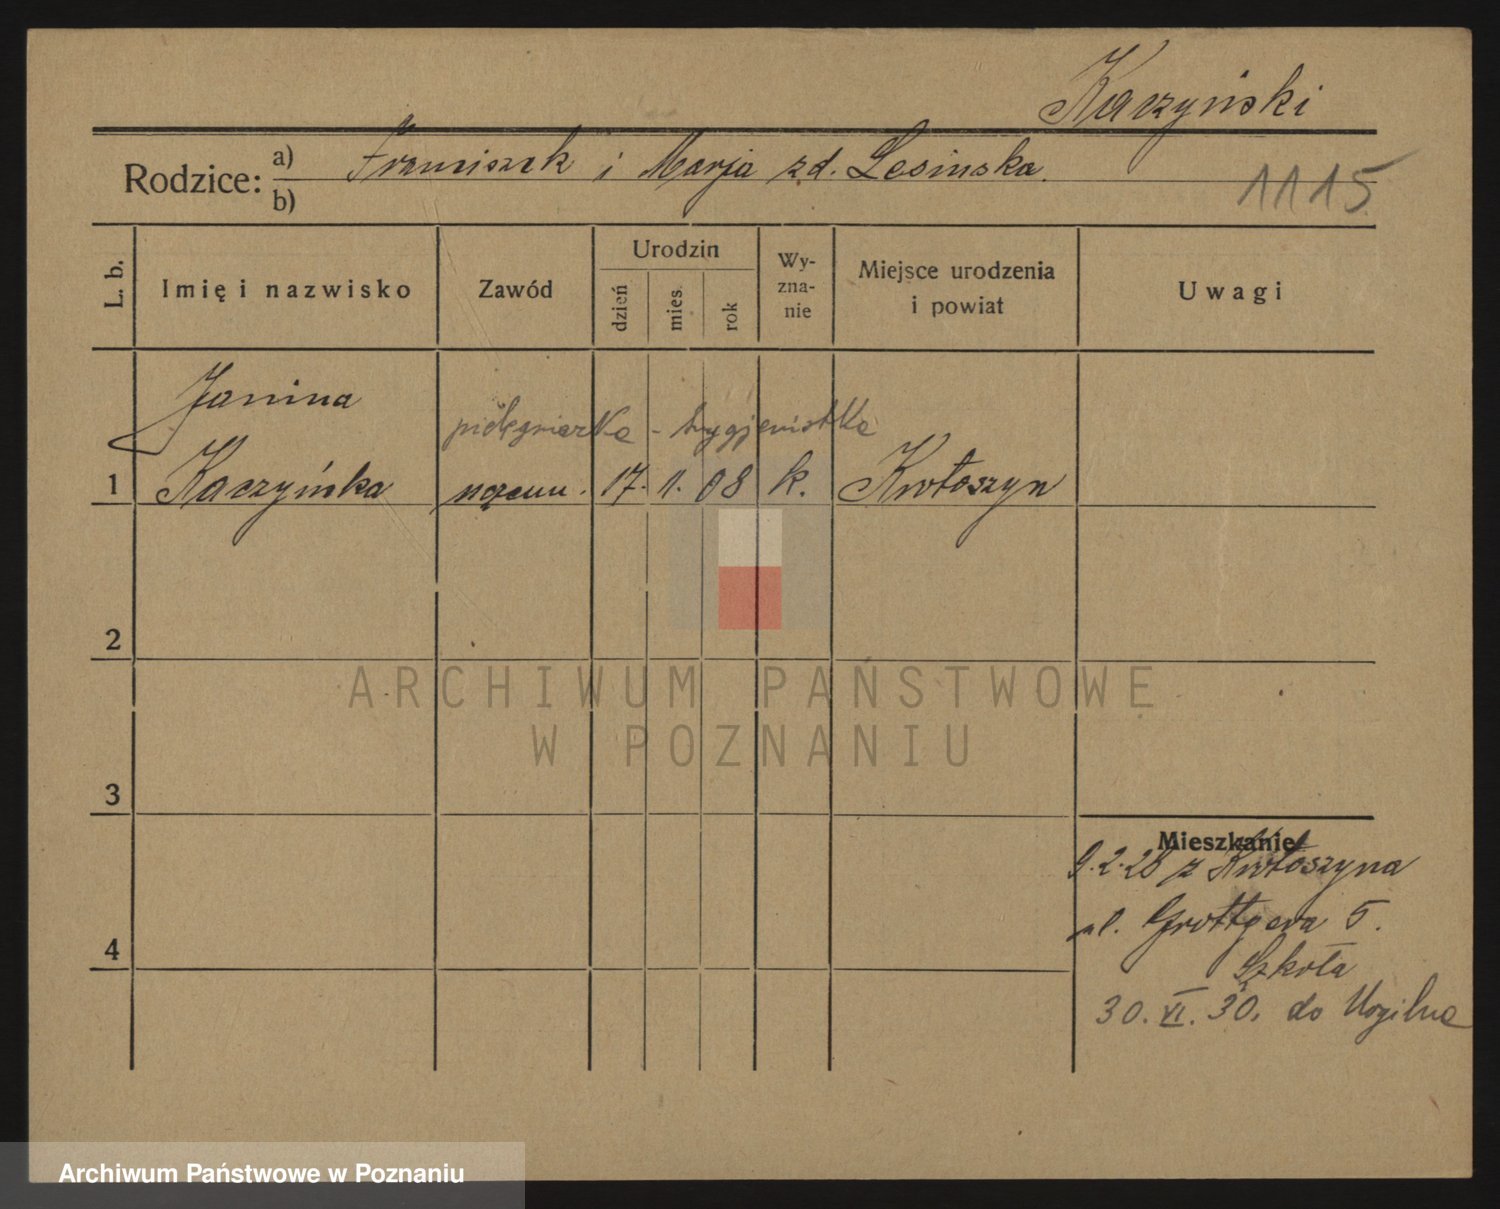 Kaczyński
Rodzice: a) Franciszek i Marja zd. Lesinska.
b)
1115
L. b.
Imię i nazwisko
Zawód
Urodzin
dzień
mies.
rok
Wy-
zna-
nie
Miejsce urodzenia
i powiat
Uwagi
Janina
pielęgniarka - hygjenistka
1 Kaczyńska uczenn. 17. 11. 08 k. Krotoszyn
2
ARCHIWUM PAŃSTWOWE
W POZNANIU
3
Mieszkanie
9.2.28 z Krotoszyna
ul. Grottgera 5.
4
Szkoła
30. VI. 30. do
Archiwum Państwowe w Poznaniu